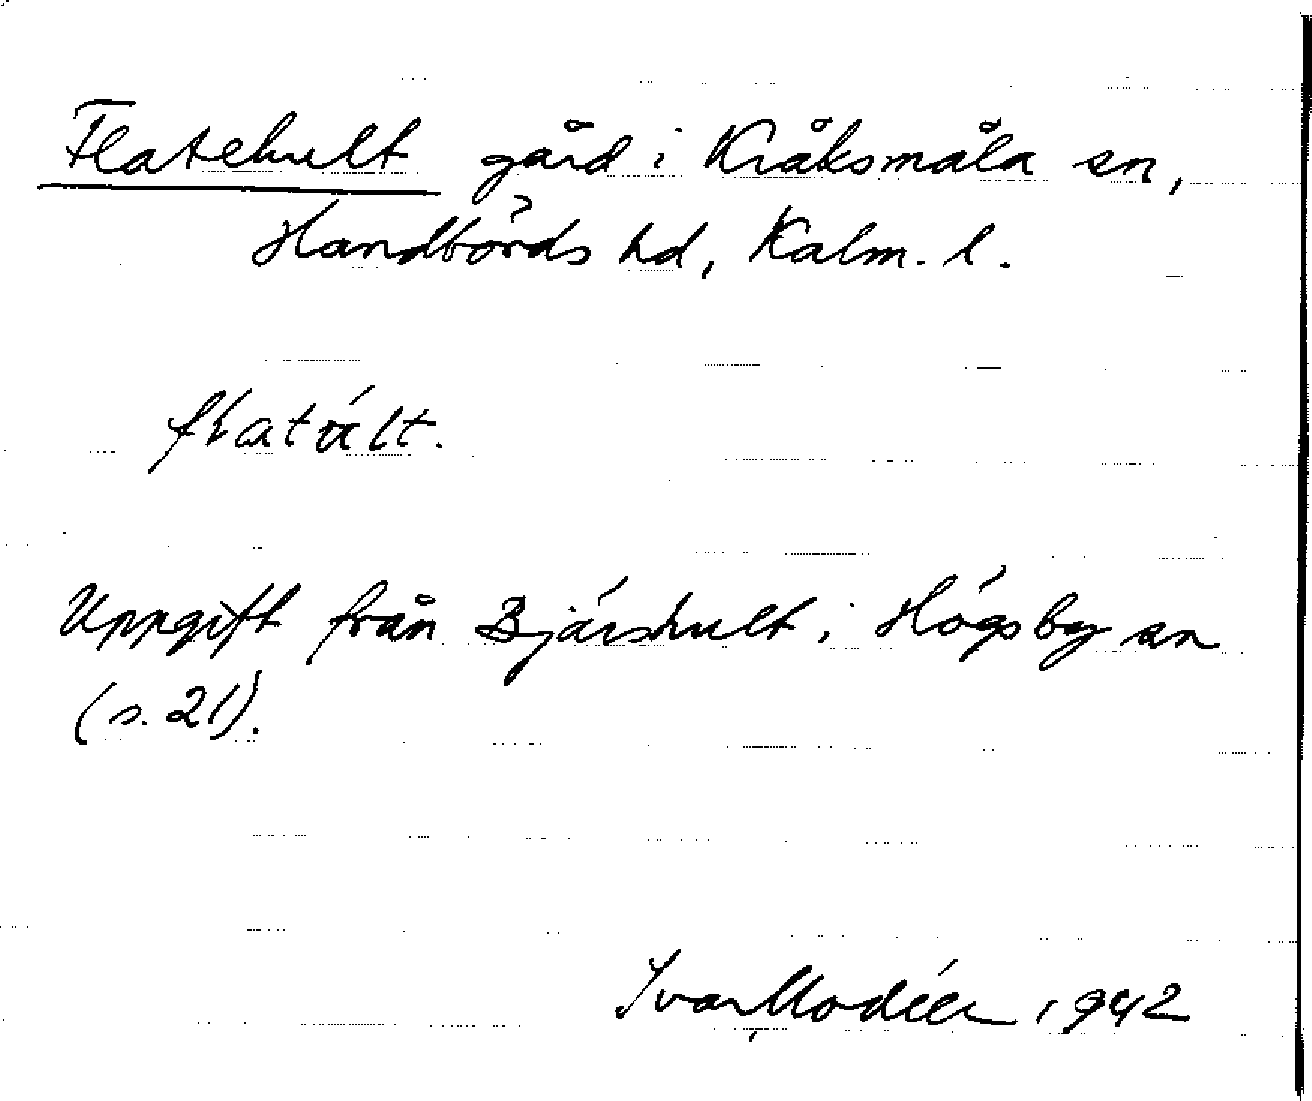 Flatehult gård i Kråksmåla sn,
Handbörds hd, Kalm. l.
Uppgift från Bjärshult i Högsby sn
(s. 21).
Ivar Modéer 1942